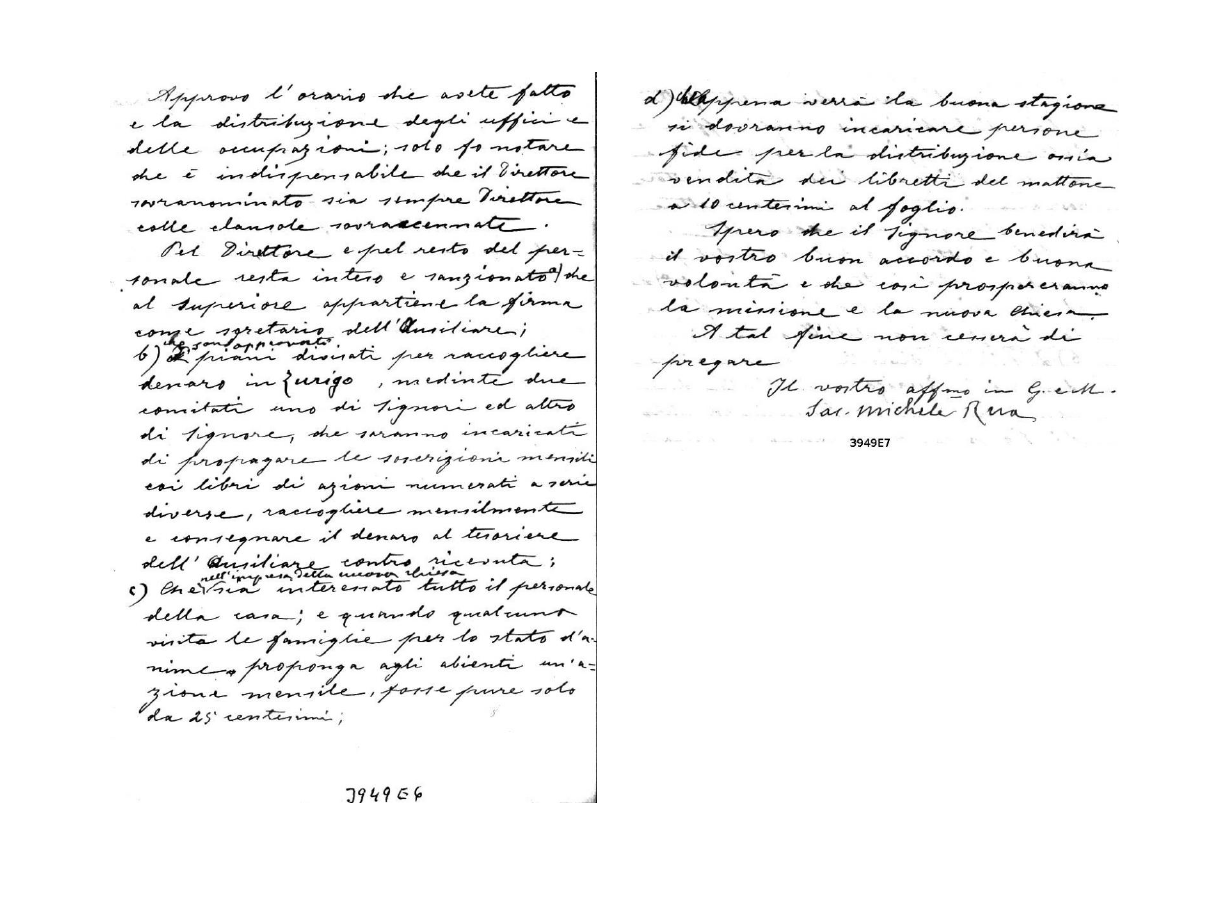 Approvo l'orario che avete fatto
e la distribuzione degli uffici e
delle occupazioni; solo fo notare
che è indispensabile che il Direttore
sovranominato sia sempre Direttore
colle clausole sovraccennate.
Pel Direttore e pel resto del per=
sonale resta inteso e sanzionato a) che
al Superiore appartiene la firma
come sgretario dell'Ausiliare;
che sono approvati
b) i piani divisati per raccogliere
denaro in Zurigo, medinte due
comitati uno di Signori ed altro
di Signore, che saranno incaricati
di propagare le soscrizioni mensili
coi libri di azioni numerati a serie
diverse, raccogliere mensilmente
e consegnare il denaro al tesoriere
dell'Ausiliare contro ricevuta;
nell'impresa della nuova chiesa
c) Che sia interessato tutto il personale
della casa; e quando qualcuno
visita le famiglie per lo stato d'a=
nime, proponga agli abienti un'a=
zione mensile, fosse pure solo
da 25 centesimi;
3949E6
d) Che appena verrà la buona stagione
si dovranno incaricare persone
fide per la distribuzione ossia
vendita dei libretti del mattone
a 10 centesimi al foglio.
Spero che il Signore benedirà
il vostro buon accordo e buona
volontà e che così prospereranno
la missione e la nuova Chiesa.
A tal fine non cesserà di
pregare
Il vostro affmo in G. e M.
Sac. Michele Rua
3949E7